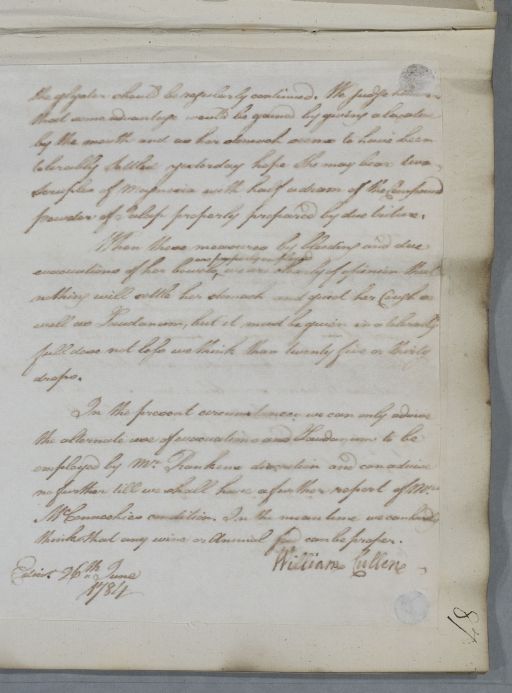 the glyster should be regularly continued. We judge
that some advantage would be gained by giving a laxative
by the mouth and as her stomach seems to have been
tolerably settled yesterday hope she may bear two
scruples of Magnesia with half a dram of the Compound
powder of Jalap properly prepared by due triture.
When these measures by bleeding and due
evacuations of her bowels are properly employed, we are clearly of opinion that
nothing will settle her stomach and quiet her Cough as
well as Laudanum, but it must be given in a tolerably
full dose not less we think than twenty five or thirty
drops.
In the present circumstances we can only advise
the alternate use of evacuations and Laudanum to be
employed by Mr. discretion and can advise
no further till we shall have a further report of Mrs
McConnochies condition. In the mean time we can hardly
think that any wine or Animal food can be proper.
William Cullen
Edinr. 26th June
1784
48